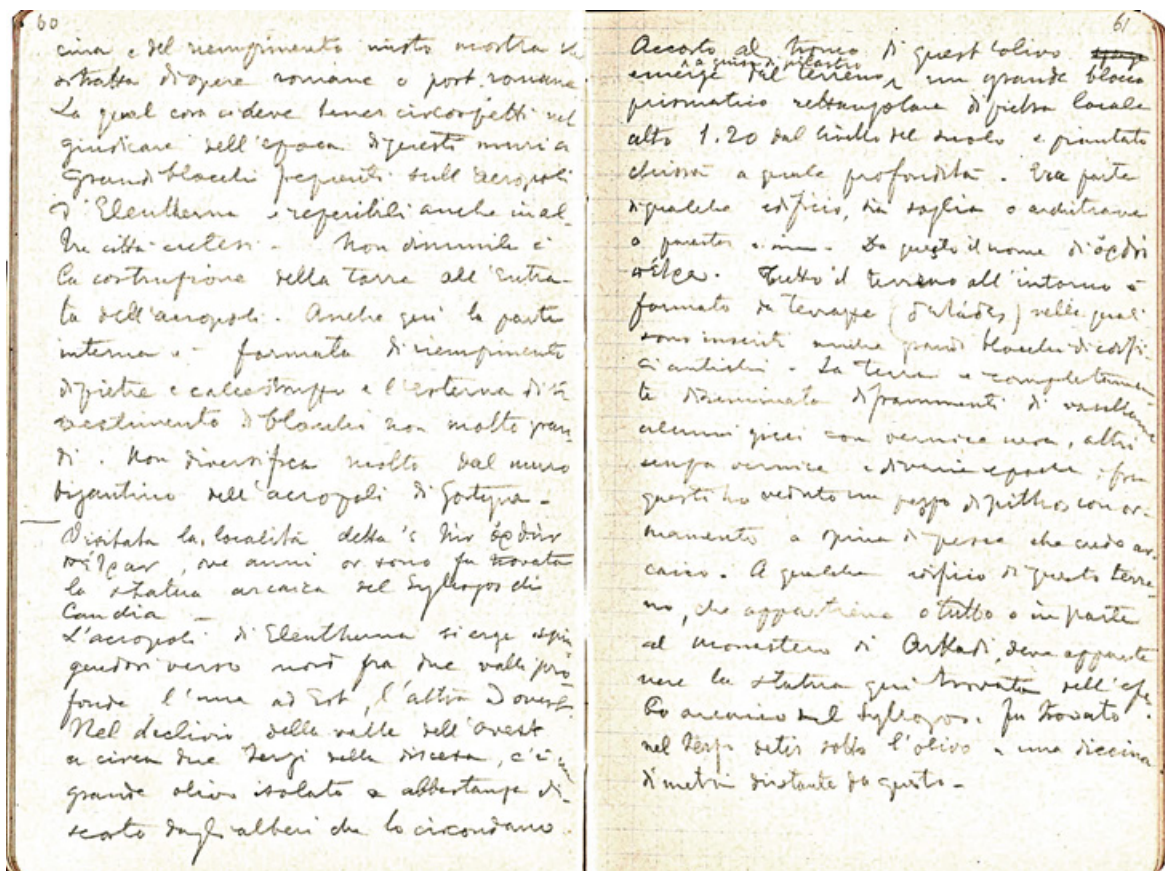 60
cina e del riempimento misto mostra che
si tratta di opere romane o post. romane
La qual cosa ci deve tener circospetti nel
giudicare dell'epoca di questi muri a
grandi blocchi frequenti sull'acropoli
d'Eleutherna e reperibili anche in al-
tre città cretesi. - Non dissimile è
la costruzione della torre all'entra-
ta dell'acropoli. Anche qui la parte
interna è formata di riempimento
di pietre e calcestruzzo e l'esterna di ri
vestimento di blocchi non molto gran
di. Non diversifica molto dal muro
bizantino dell'acropoli di Gortyna -
Visitata la località detta 's τὴν ὀρθὴν
πέτραν, ove anni or sono fu trovata
la statua arcaica del Syllogos di
Candia -
L'acropoli di Eleutherna si erge spin
gendosi verso nord fra due valli pro
fonde l'una ad Est, l'altra ad ovest.
Nel declivio della valle dell'ovest
a circa due terzi della discesa, c'è un
grande olivo isolato e abbastanza di-
scosto dagli alberi che lo circondano.
61
Accosto al tronco di quest'olivo
a guisa di pilastro
emerge dal terreno un grande blocco
prismatico rettangolare di pietra locale
alto 1.20 dal livello del suolo e piantato
chissà a quale profondità. Era parte
di qualche edificio, sia soglia o architrave
o Da questo il nome di ὀρθὴ
πέτρα. Tutto il terreno all'intorno è
formato da terrazze nelle quali
sono inseriti anche grandi blocchi di edifi-
ci antichi. La terra è completamen
te disseminata di frammenti di vasellame
alcuni greci con vernice nera, altri
senza vernice e diverse epoche, fra
questi ho veduto un pezzo di pithos con or-
namento a spina di pesce che credo ar-
caico. A qualche edificio di questo terre
no, che appartiene o tutto o in parte
al monastero di Arkadi, deve apparte
nere la statua qui trovata dell'
arcaico del Syllogos. Fu trovato
nel sotto l'olivo a una diecina
di metri distante da questo -